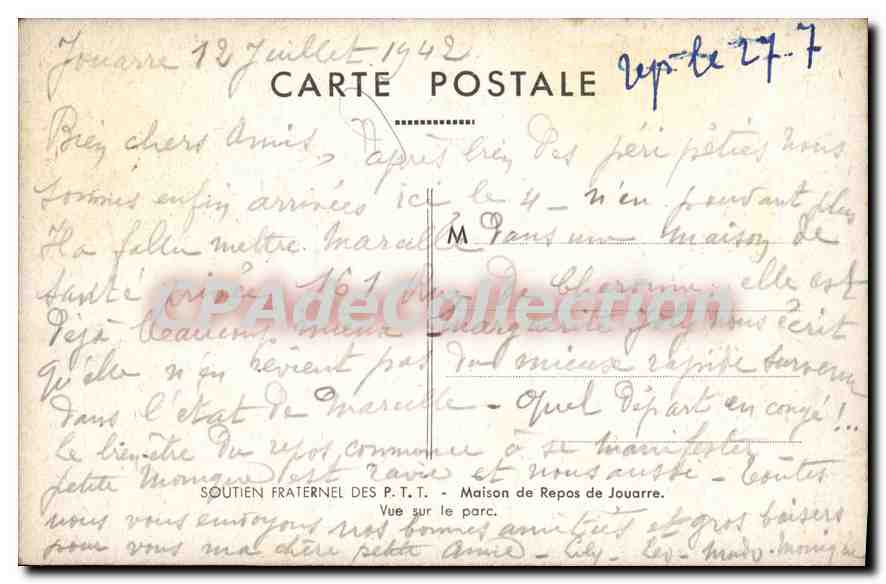 Jouarre 12 Juillet 1942
rep. le 27-7
CARTE POSTALE
Bien chers Amis, Après bien des péri péties nous
sommes enfin arrivées ici le 4 - n'en pouvant plus
Il a fallu mettre Marcelle dans une maison de
M
santé privée 161 Rue de Charonne, elle est
CPAdeCollection
Déjà beaucoup mieux Marguerite Jay nous écrit
qu'elle n'en revient pas du mieux rapide survenu
dans l'état de Marcelle - Quel Départ en congé!...
Le bien être du repos commence à se manifester
petite Monique est ravie et nous aussi - Toutes
SOUTIEN FRATERNEL DES P. T. T. - Maison de Repos de Jouarre.
Vue sur le parc.
nous vous envoyons nos bonnes amitiés et gros baisers
pour vous ma chère petite Amie - Léo - Mado - Monique